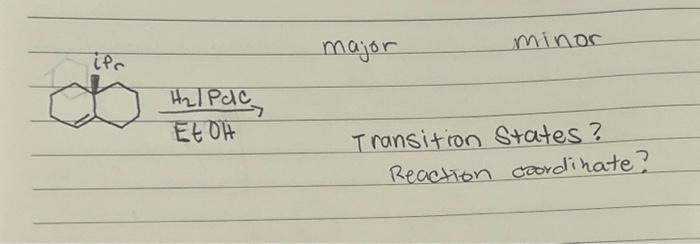 major minor
iPr
H2/PdC
EtOH
Transition States?
Reaction coordinate?